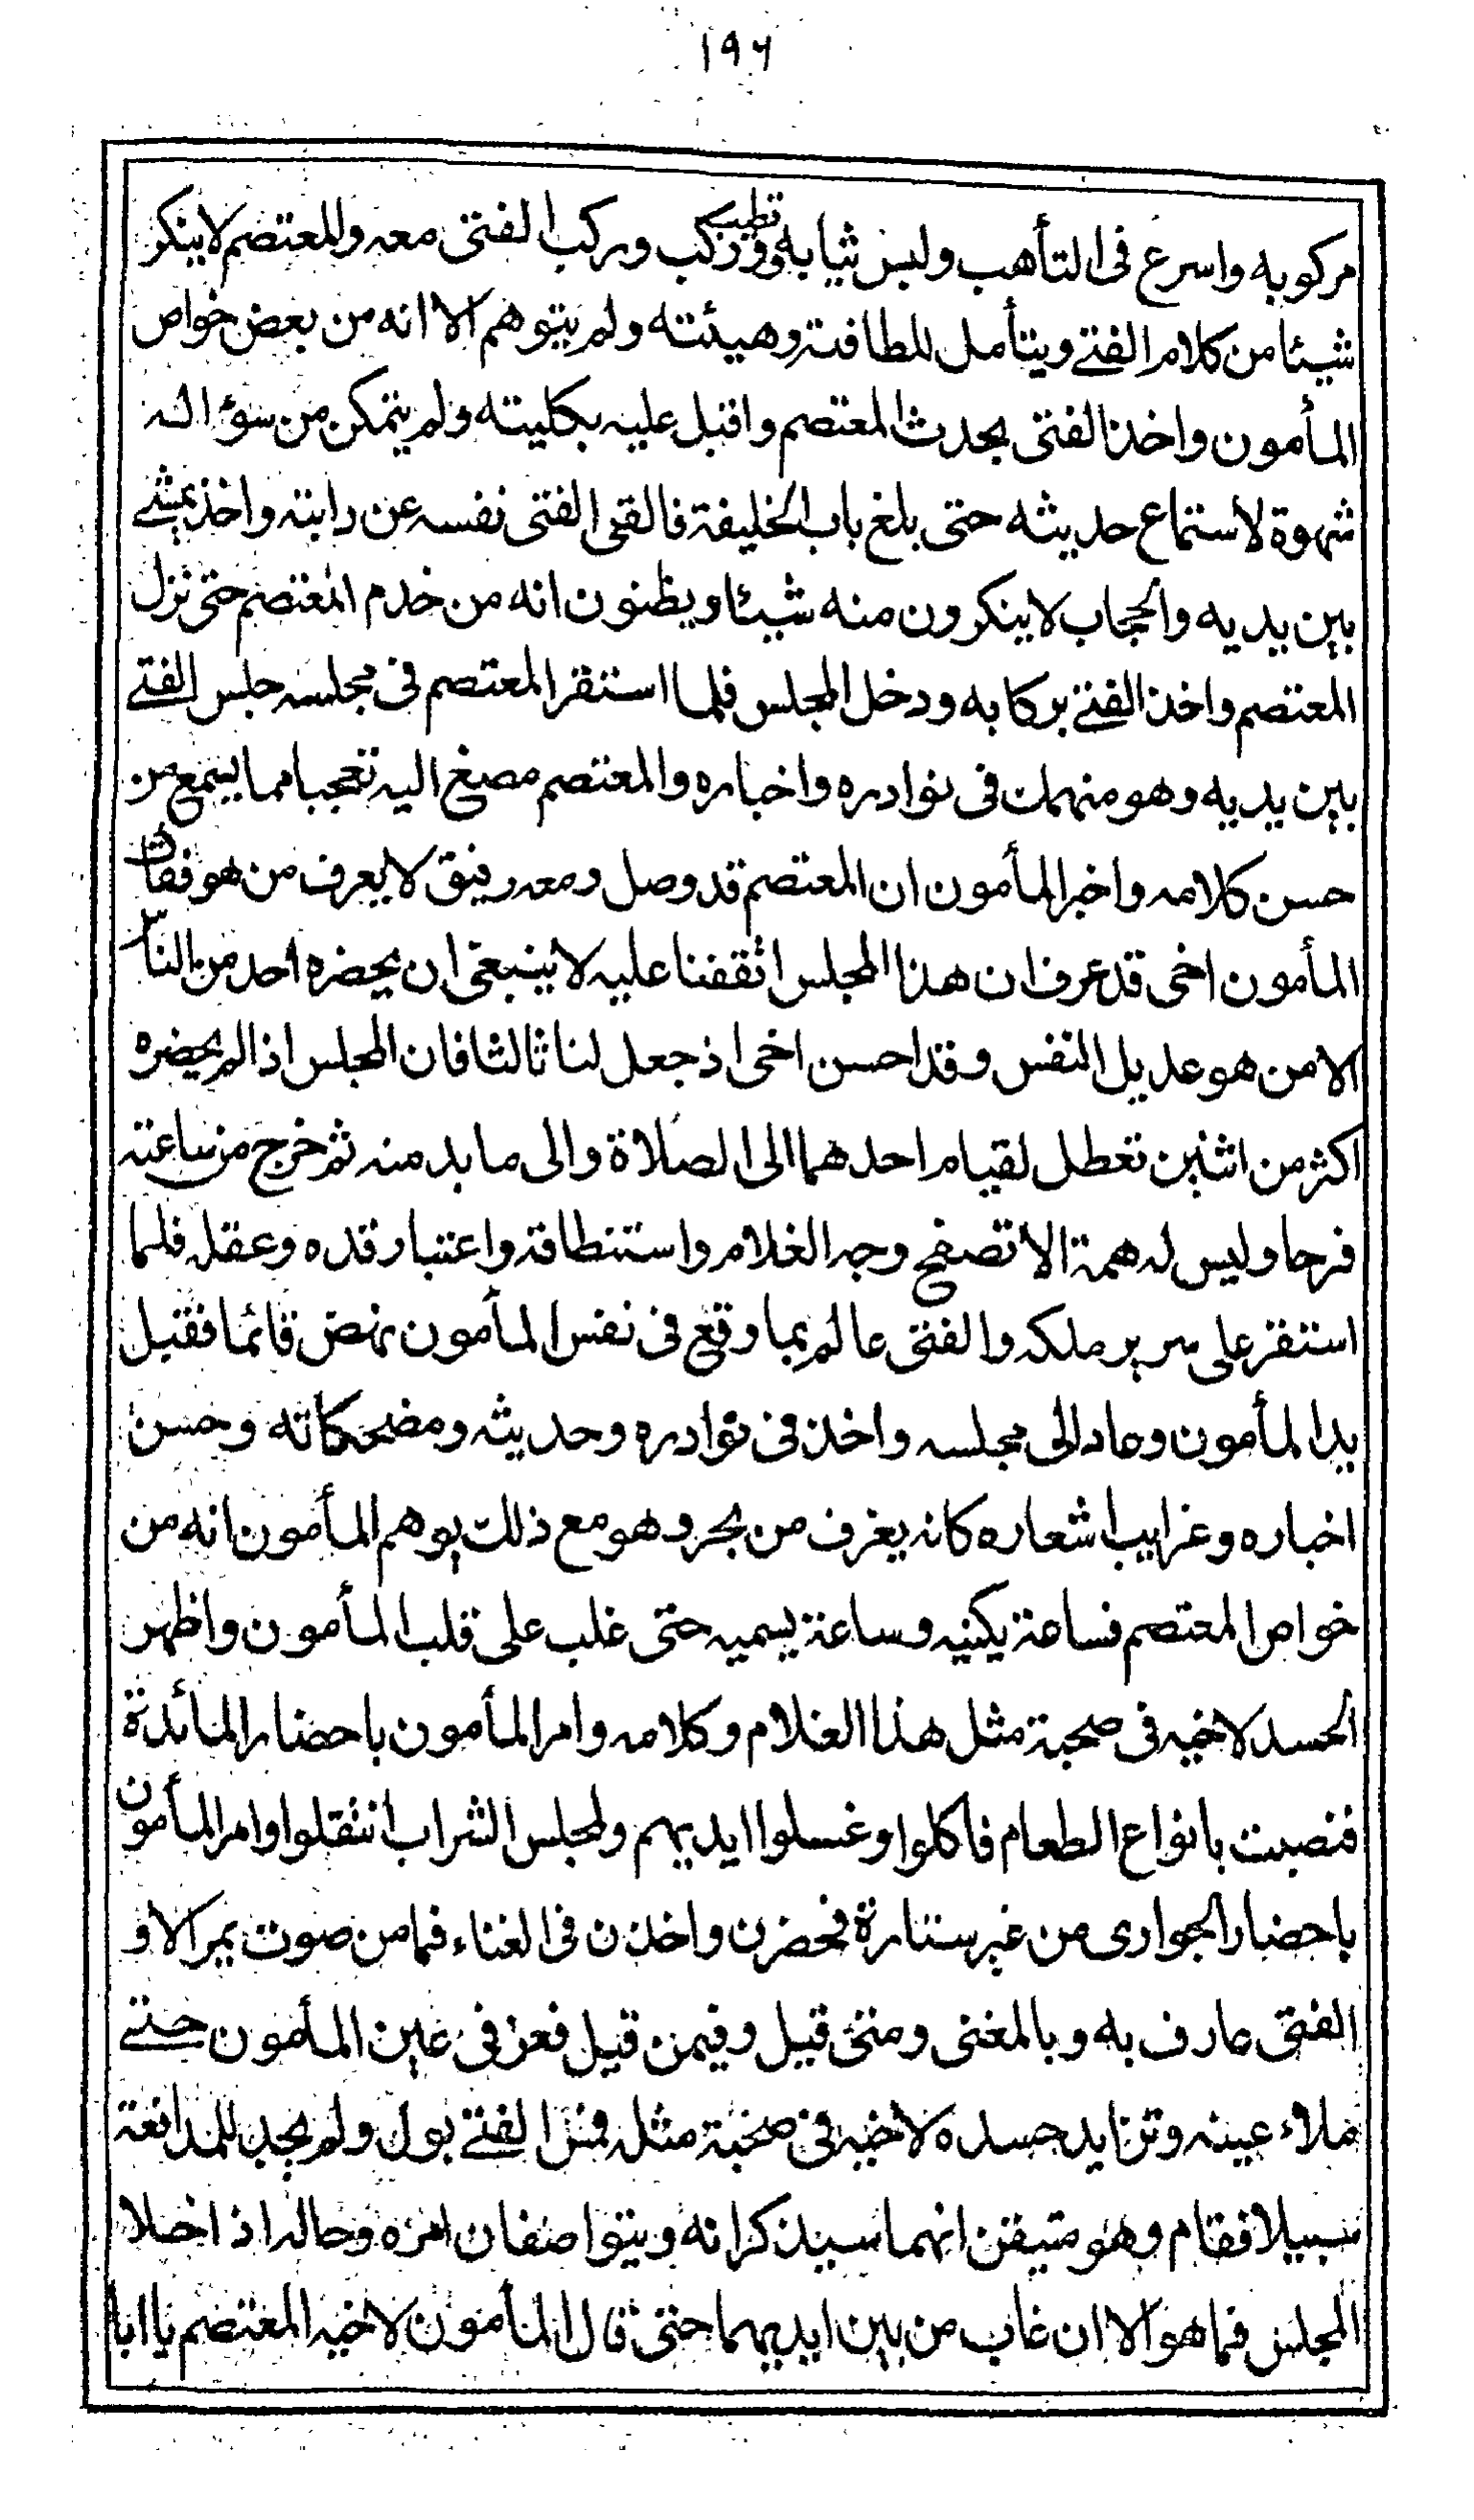 ١٩٦
مركوبه واسرع فى التأهب ولبس ثيابه وتطيب وركب وركب الفتى معه والمعتصم لاينكر
شيئا من كلام الفتى ويتأمل للطافته وهيئته ولم يتوهم الا انه من بعض خواص
المأمون واخذ الفتى يحدث المعتصم واقبل عليه بكليته ولم يتمكن من سؤاله
شهوة لاستماع حديثه حتى بلغ باب الخليفة فالقى الفتى نفسه عن دابته واخذ يمشى
بين يديه والحجاب لاينكرون منه شيئا ويظنون انه من خدم المعتصم حتى نزل
المعتصم واخذ الفتى بركابه ودخل المجلس فلما استقر المعتصم فى مجلسه جلس الفتى
بين يديه وهو منهمك فى نوادره واخباره والمعتصم مصغ اليه تعجبا مما يسمع من
حسن كلامه واخبر المأمون ان المعتصم قد وصل ومعه رفيق لايعرف من هو فقال
المأمون اخى قد عرف ان هذا المجلس اتفقنا عليه لاينبغى ان يحضره احد من الناس
الا من هو عديل النفس وقد احسن اخى اذ جعل لنا ثالثا فان المجلس اذا لم يحضره
اكثر من اثنين تعطل لقيام احدهما الى الصلاة والى مابد منه ثم خرج من ساعته
فرحا وليس له همة الا تصفح وجه الغلام واستنطاقه واعتبار قده وعقله فلما
استقر على سرير ملكه والفتى عالم بما وقع فى نفس المأمون نهض قائما فقبل
يد المأمون وعاد الى مجلسه واخذ فى نوادره وحديثه ومضحكاته وحسن
اخباره وغرايب اشعاره كانه يغرف من بحر وهو مع ذلك يوهم المأمون انه من
خواص المعتصم فساعة يكنيه وساعة يسميه حتى غلب على قلب المأمون واظهر
الحسد لاخيه فى صحبة مثل هذا الغلام وكلامه وامر المأمون باحضار المائدة
فنصبت بانواع الطعام فاكلوا وغسلوا ايديهم ولمجلس الشراب انتقلوا وامر المأمون
باحضار الجوارى من غير ستارة فحضرن واخذن فى الغناء فما من صوت يمر الا و
الفتى عارف به وبالمغنى ومتى قيل وفيمن قيل فعز فى عين المأمون حتى
ملاء عينه وتزايد حسده لاخيه فى صحبة مثله فمز الفتى بول ولم يجد للمدافعة
سبيلا فقام وهو متيقن انهما سيذكرانه ويتواصفان امره وحاله اذا خلا
المجلس فما هو الا ان غاب من بين ايديهما حتى قال المأمون لاخيه المعتصم يا ابا